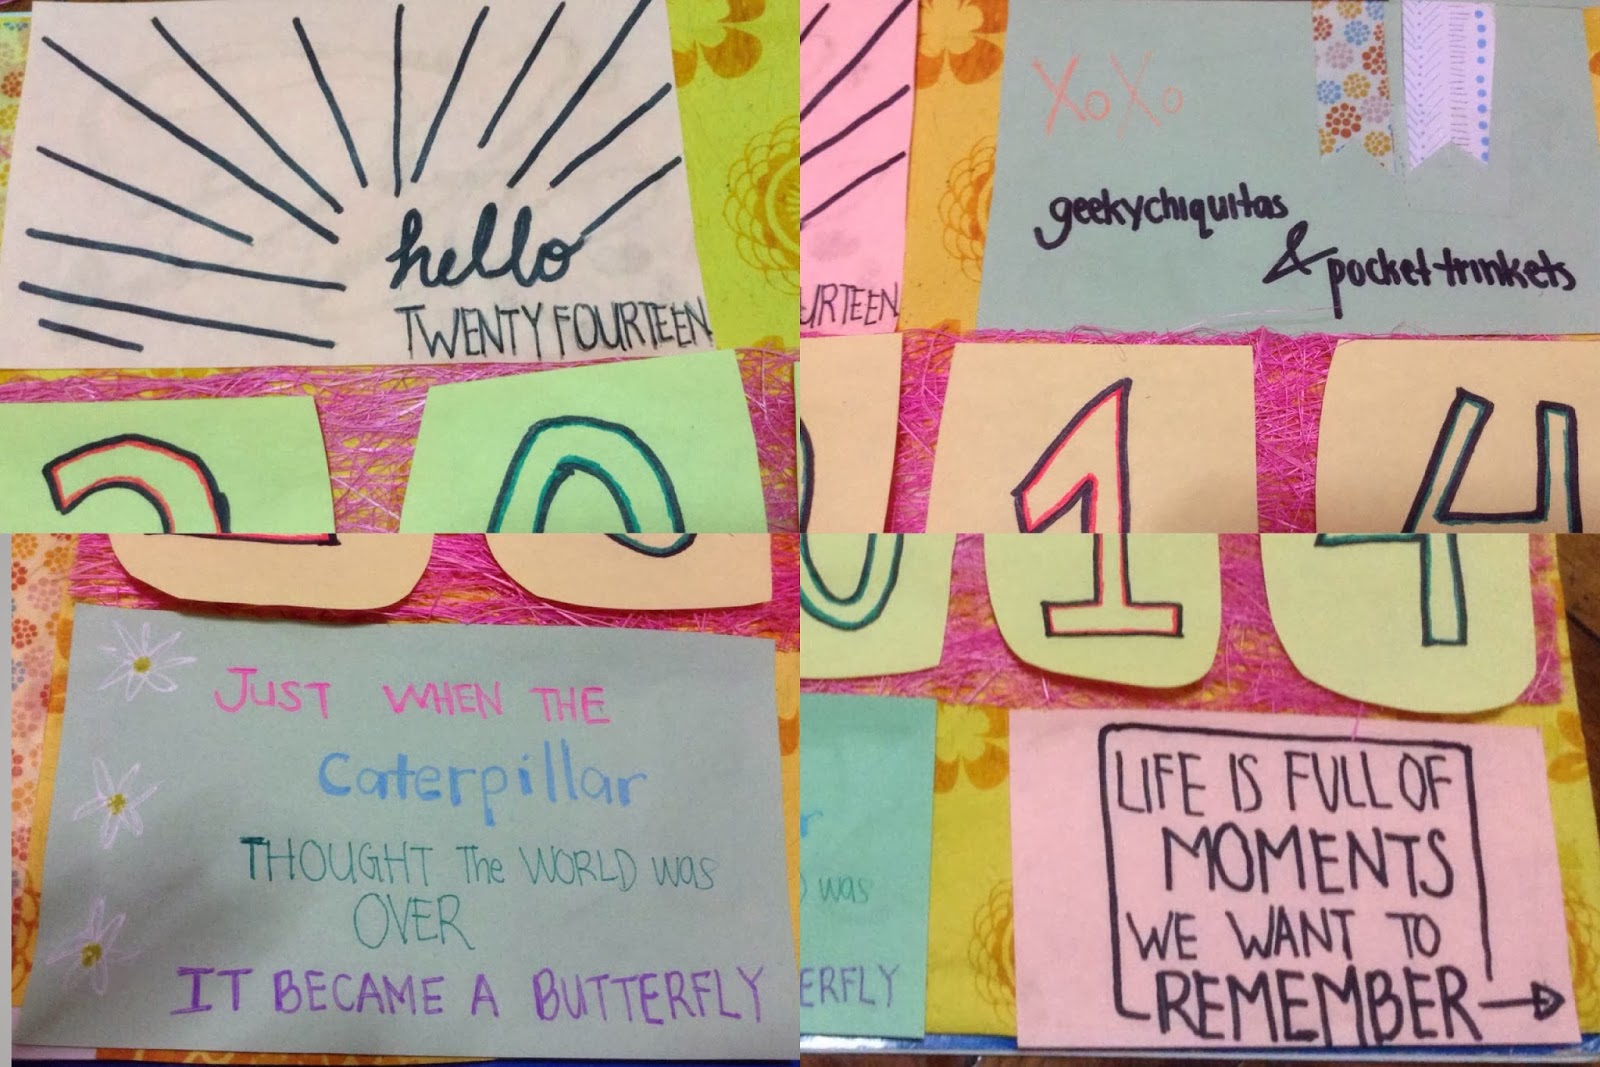 hello
TWENTY FOURTEEN
URTEEN
XoXo
geekychiquitas
& pocket trinkets
2 0
1 4
JUST WHEN THE
Caterpillar
THOUGHT The WORLD was
OVER
IT BECAME A BUTTERFLY
r
was
ERFLY
LIFE IS FULL OF
MOMENTS
WE WANT TO
REMEMBER